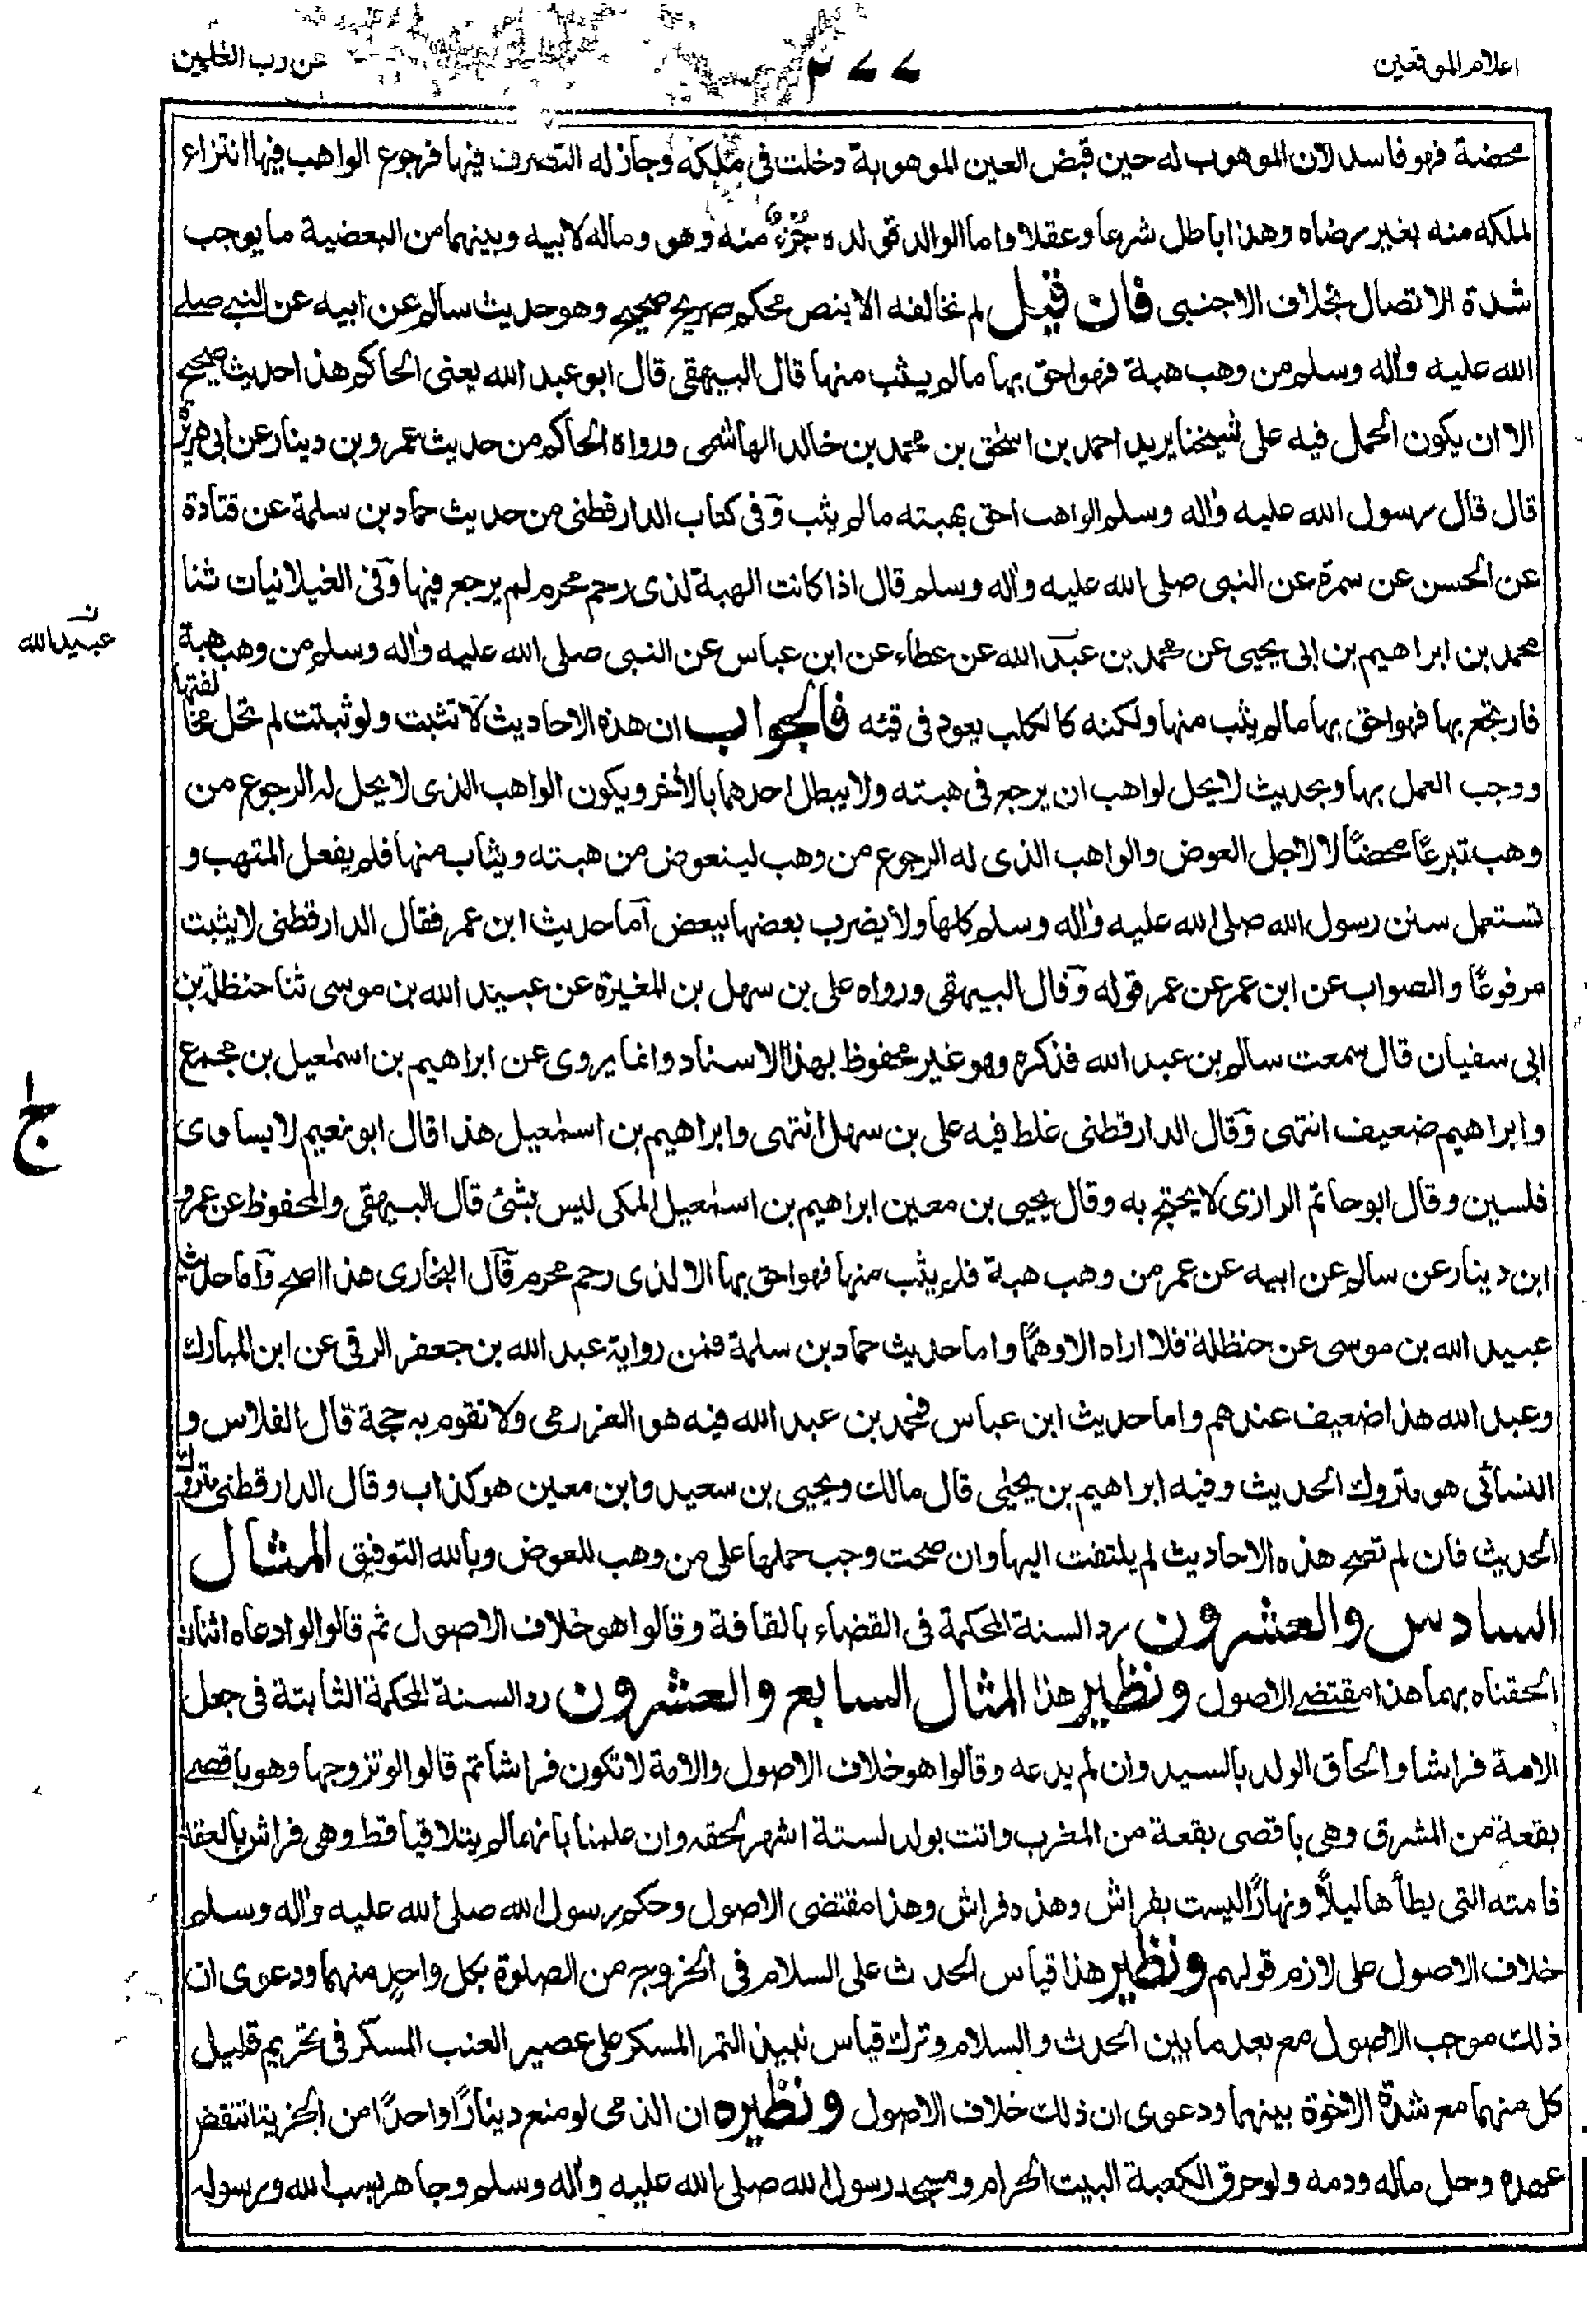 اعلام الموقعين
٢٧٧
عن رب العلمين
محضة فهو فاسد لان الموهوب له حين قبض العين الموهوبة دخلت فى ملكه وجاز له التصرف فيها فرجوع الواهب فيها انتزاع
لملكه منه بغير رضاه وهذا باطل شرعا وعقلا واما الوالد فولده جُزءٌ منه وهو وماله لابيه وبينهما من البعضية ما يوجب
شدة الاتصال بخلاف الاجنبى فان قيل لم نخالفه الا بنص محكم صريح صحيح وهو حديث سالم عن ابيه عن النبي صلے
الله عليه واٰله وسلم من وهب هبة فهو احق بها مالم يثب منها قال البيهقى قال ابو عبد الله يعنى الحاكم هذا حديث صحيح
الا ان يكون الحمل فيه على شيخنا يريد احمد بن اسحٰق بن محمد بن خالد الهاشمى ورواه الحاكم من حديث عمرو بن دينار عن ابى هريرة
قال قال رسول الله عليه واٰله وسلم الواهب احق بهبته مالم يثب وفى كتاب الدارقطنى من حديث حماد بن سلمة عن قتادة
عن الحسن عن سمرة عن النبى صلى الله عليه واٰله وسلم قال اذا كانت الهبة لذى رحم محرم لم يرجع فيها وفى الغيلانيات ثنا
محمد بن ابراهيم بن ابى يحيى عن محمد بن عبد الله عن عطاء عن ابن عباس عن النبى صلى الله عليه واٰله وسلم من وهب هبة
ن عبيد الله
فارتجع بها فهو احق بها مالم يثب منها ولكنه كالكلب يعود فى قيئه فالجواب ان هذه الاحاديث لا تثبت ولو ثبتت لم تحل مخالفتها
ووجب العمل بها وبحديث لا يحل لواهب ان يرجع فى هبته ولا يبطل احدهما بالأخر ويكون الواهب الذى لا يحل له الرجوع من
وهب تبرعًا محضًا لا لاجل العوض والواهب الذى له الرجوع من وهب ليتعوض من هبته ويثاب منها فلم يفعل المتهب و
تستعمل سنن رسول الله صلى الله عليه واٰله وسلم كلها ولا يضرب بعضها ببعض اما حديث ابن عمر فقال الدارقطنى لا يثبت
مرفوعًا والصواب عن ابن عمر عن عمر قوله وقال البيهقى ورواه على بن سهل بن المغيرة عن عبيد الله بن موسى ثنا حنظلة بن
ابى سفيان قال سمعت سالم بن عبد الله فذكره وهو غير محفوظ بهذا الاسناد وانما يروى عن ابراهيم بن اسمٰعيل بن مجمع
ج
وابراهيم ضعيف انتهى وقال الدارقطنى غلط فيه على بن سهل انتهى وابراهيم بن اسمٰعيل هذا قال ابو نعيم لا يساوى
فلسين وقال ابو حاتم الرازى لا يحتج به وقال يحيى بن معين ابراهيم بن اسمٰعيل المكى ليس بشئ قال البيهقى والمحفوظ عن عمرو
ابن دينار عن سالم عن ابيه عن عمر من وهب هبة فلم يثب منها فهو احق بها الا لذى رحم محرم قال البخارى هذا اصح واما حديث
عبيد الله بن موسى عن حنظلة فلا اراه الا وهمًا واما حديث حماد بن سلمة فمن رواية عبد الله بن جعفر الرقى عن ابن المبارك
وعبد الله هذا ضعيف عندهم واما حديث ابن عباس فمحمد بن عبد الله فيه هو العزرمى ولا تقوم به حجة قال الفلاس و
النسائى هو متروك الحديث وفيه ابراهيم بن يحيٰى قال مالك ويحيى بن سعيد وابن معين هو كذاب وقال الدارقطنى متروك
الحديث فان لم تصح هذه الاحاديث لم يلتفت اليها وان صحت وجب حملها على من وهب للعوض وبالله التوفيق المثال
السادس والعشرون رد السنة المحكمة فى القضاء بالقافة وقالوا هو خلاف الاصول ثم قالوا لو ادعاه اثنان
الحقناه بهما هذا مقتضے الاصول ونظير هذا المثال السابع والعشرون رد السنة المحكمة الثابتة فى جعل
الامة فراشا والحاق الولد بالسيد وان لم يدعه وقالوا هو خلاف الاصول والامة لا تكون فراشا ثم قالوا لو تزوجها وهو باقصے
بقعة من المشرق وهى باقصى بقعة من المغرب واتت بولد لستة اشهر لحقه وان علمنا بانهما لم يتلاقيا قط وهى فراش بالعقد
فامته التى يطأها ليلًا ونهارًا ليست بفراش وهذه فراش وهذا مقتضى الاصول وحكم رسول الله صلى الله عليه واٰله وسلم
خلاف الاصول على لازم قولهم ونظير هذا قياس الحدث على السلام فى الخروج من الصلوة بكل واحدٍ منهما ودعوى ان
ذلك موجب الاصول مع بعد ما بين الحدث والسلام وترك قياس نبيذ التمر المسكر على عصير العنب المسكر فى تحريم قليل
كل منهما مع شدة الاخوة بينهما ودعوى ان ذلك خلاف الاصول ونظيره ان الذمى لو منع دينارًا واحدًا من الجزية انتقض
عهده وحل ماله ودمه ولو حرق الكعبة البيت الحرام ومسجد رسول الله صلى الله عليه واٰله وسلم وجاهر بسب الله ورسوله